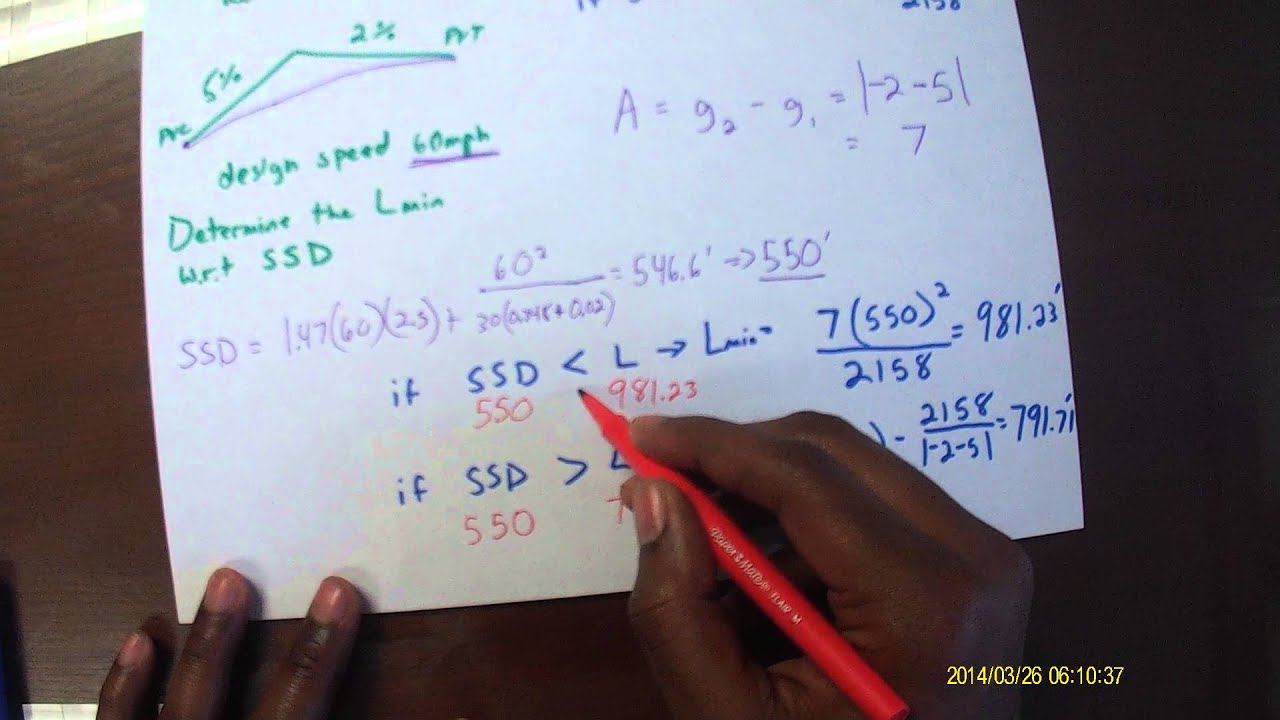 2158
2% PVT
5%
PVC
A = g₂ - g₁ = |-2-5|
= 7
design speed 60mph
Determine the Lmin
w.r.t SSD
SSD = 1.47(60)(2.5) + 60² / 30(0.348+0.02) = 546.6' → 550'
if SSD < L → Lmin = 7(550)² / 2158 = 981.23'
550 981.23
if SSD > L ) - 2158 / |-2-5| = 791.71'
550 7
PAPER MATE FLAIR M
2014/03/26 06:10:37